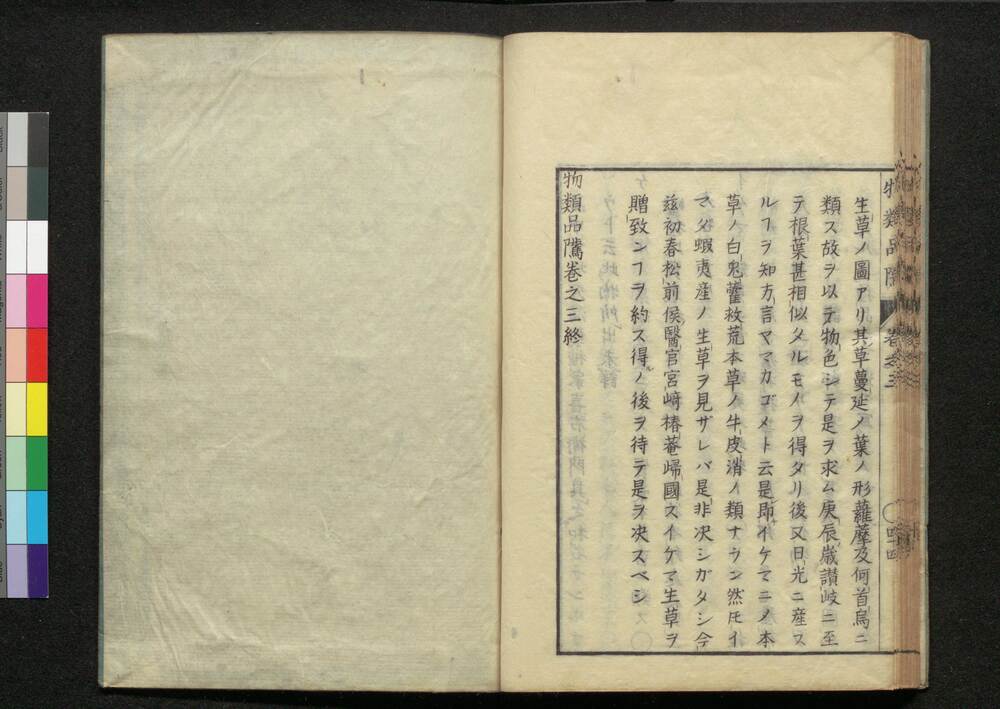 生草ノ圖アリ其草蔓延ノ葉ノ形蘿藦及何首烏ニ
類ス故ヲ以テ物色シテ是ヲ求ム庚辰歳讃岐ニ至
テ根葉甚相似タルモノヲ得タリ後又日光ニ産ス
ルヿヲ知方言ママカゴメト云是即イケマニノ本
草ノ白兎藿救荒本草ノ牛皮消ノ類ナラン然㆑𪜈イ
マダ蝦夷産ノ生草ヲ見ザレバ是非决シガタシ今
玆初春松前侯醫官宮﨑椿菴歸國スイケマ生草ヲ
贈致ンヿヲ約ス得ノ後ヲ待テ是ヲ决スベシ
物類品隲卷之三終
物類品隲
卷之三